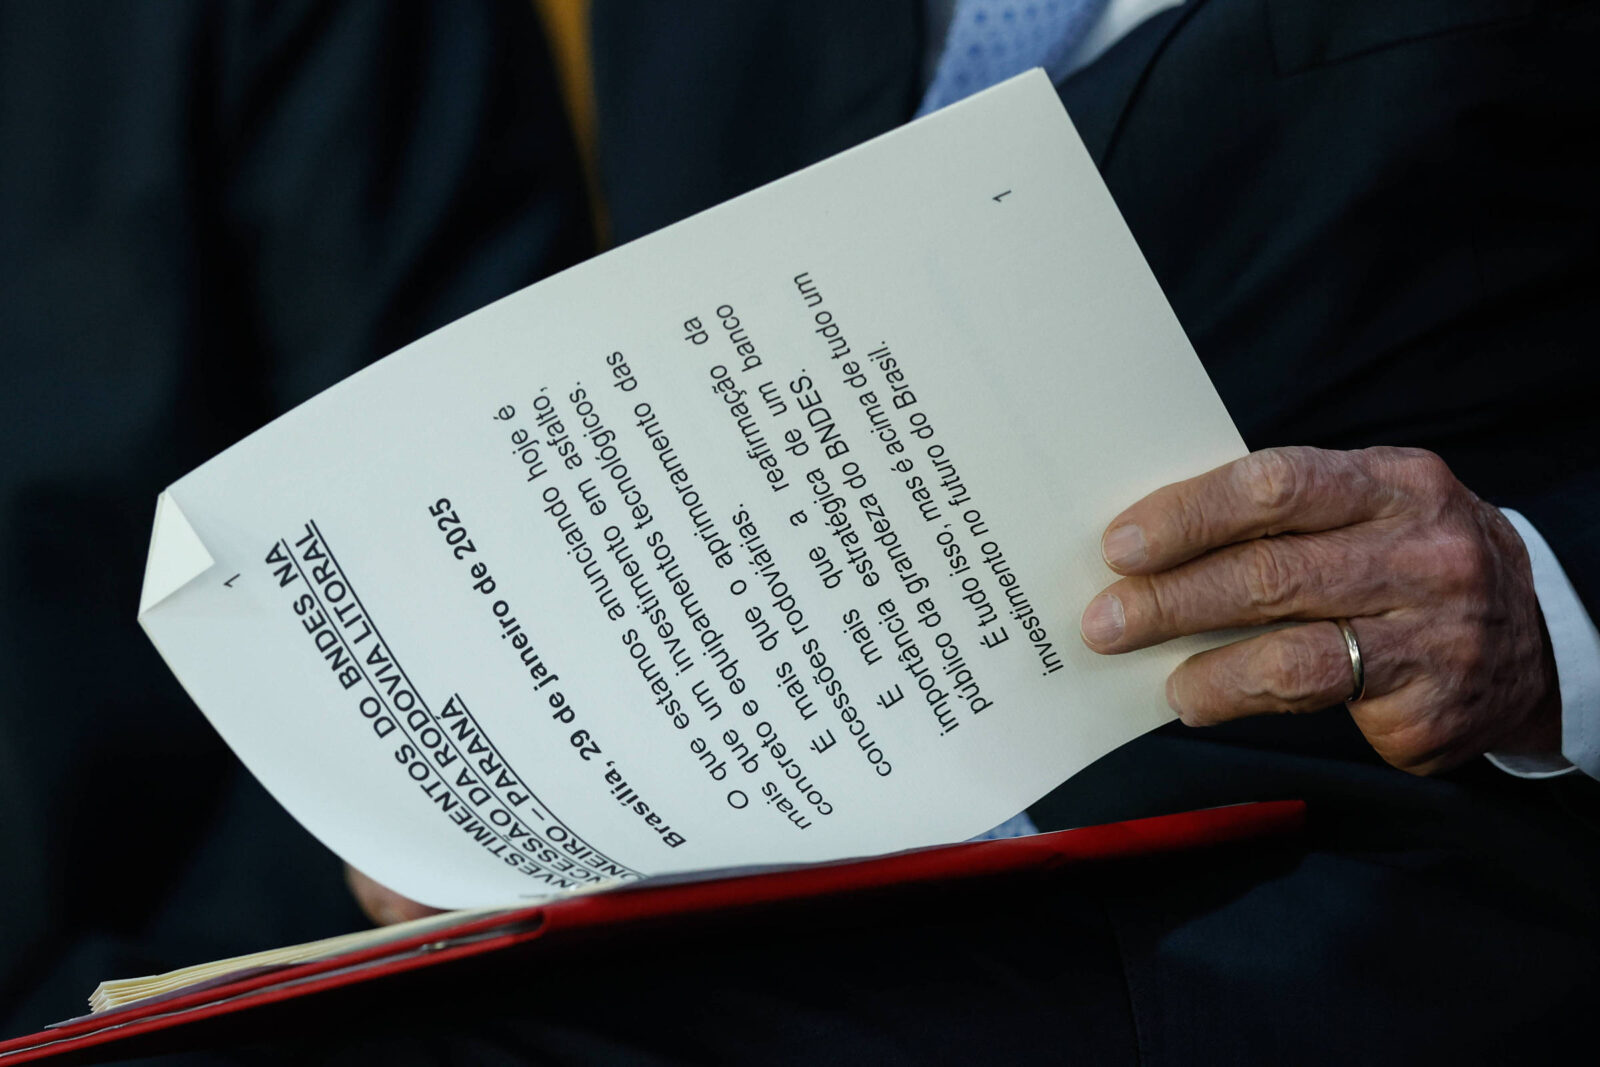 1
INVESTIMENTOS DO BNDES NA
CONCESSÃO DA RODOVIA LITORAL
PIONEIRO – PARANÁ
Brasília, 29 de janeiro de 2025
O que estamos anunciando hoje é
mais que um investimento em asfalto,
concreto e equipamentos tecnológicos.
É mais que o aprimoramento das
concessões rodoviárias.
É mais que a reafirmação da
importância estratégica de um banco
público da grandeza do BNDES.
É tudo isso, mas é acima de tudo um
investimento no futuro do Brasil.
1